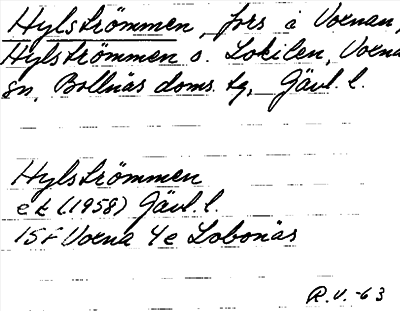 Hylströmmen, fors å Voxnan,
Hylströmmen o. Lokilen, Voxna
sn, Bollnäs doms. tg, Gävl. l.
Hylströmmen
ek (1958) Gävl. l.
15F Voxna 4e Lobonäs
R.V. -63